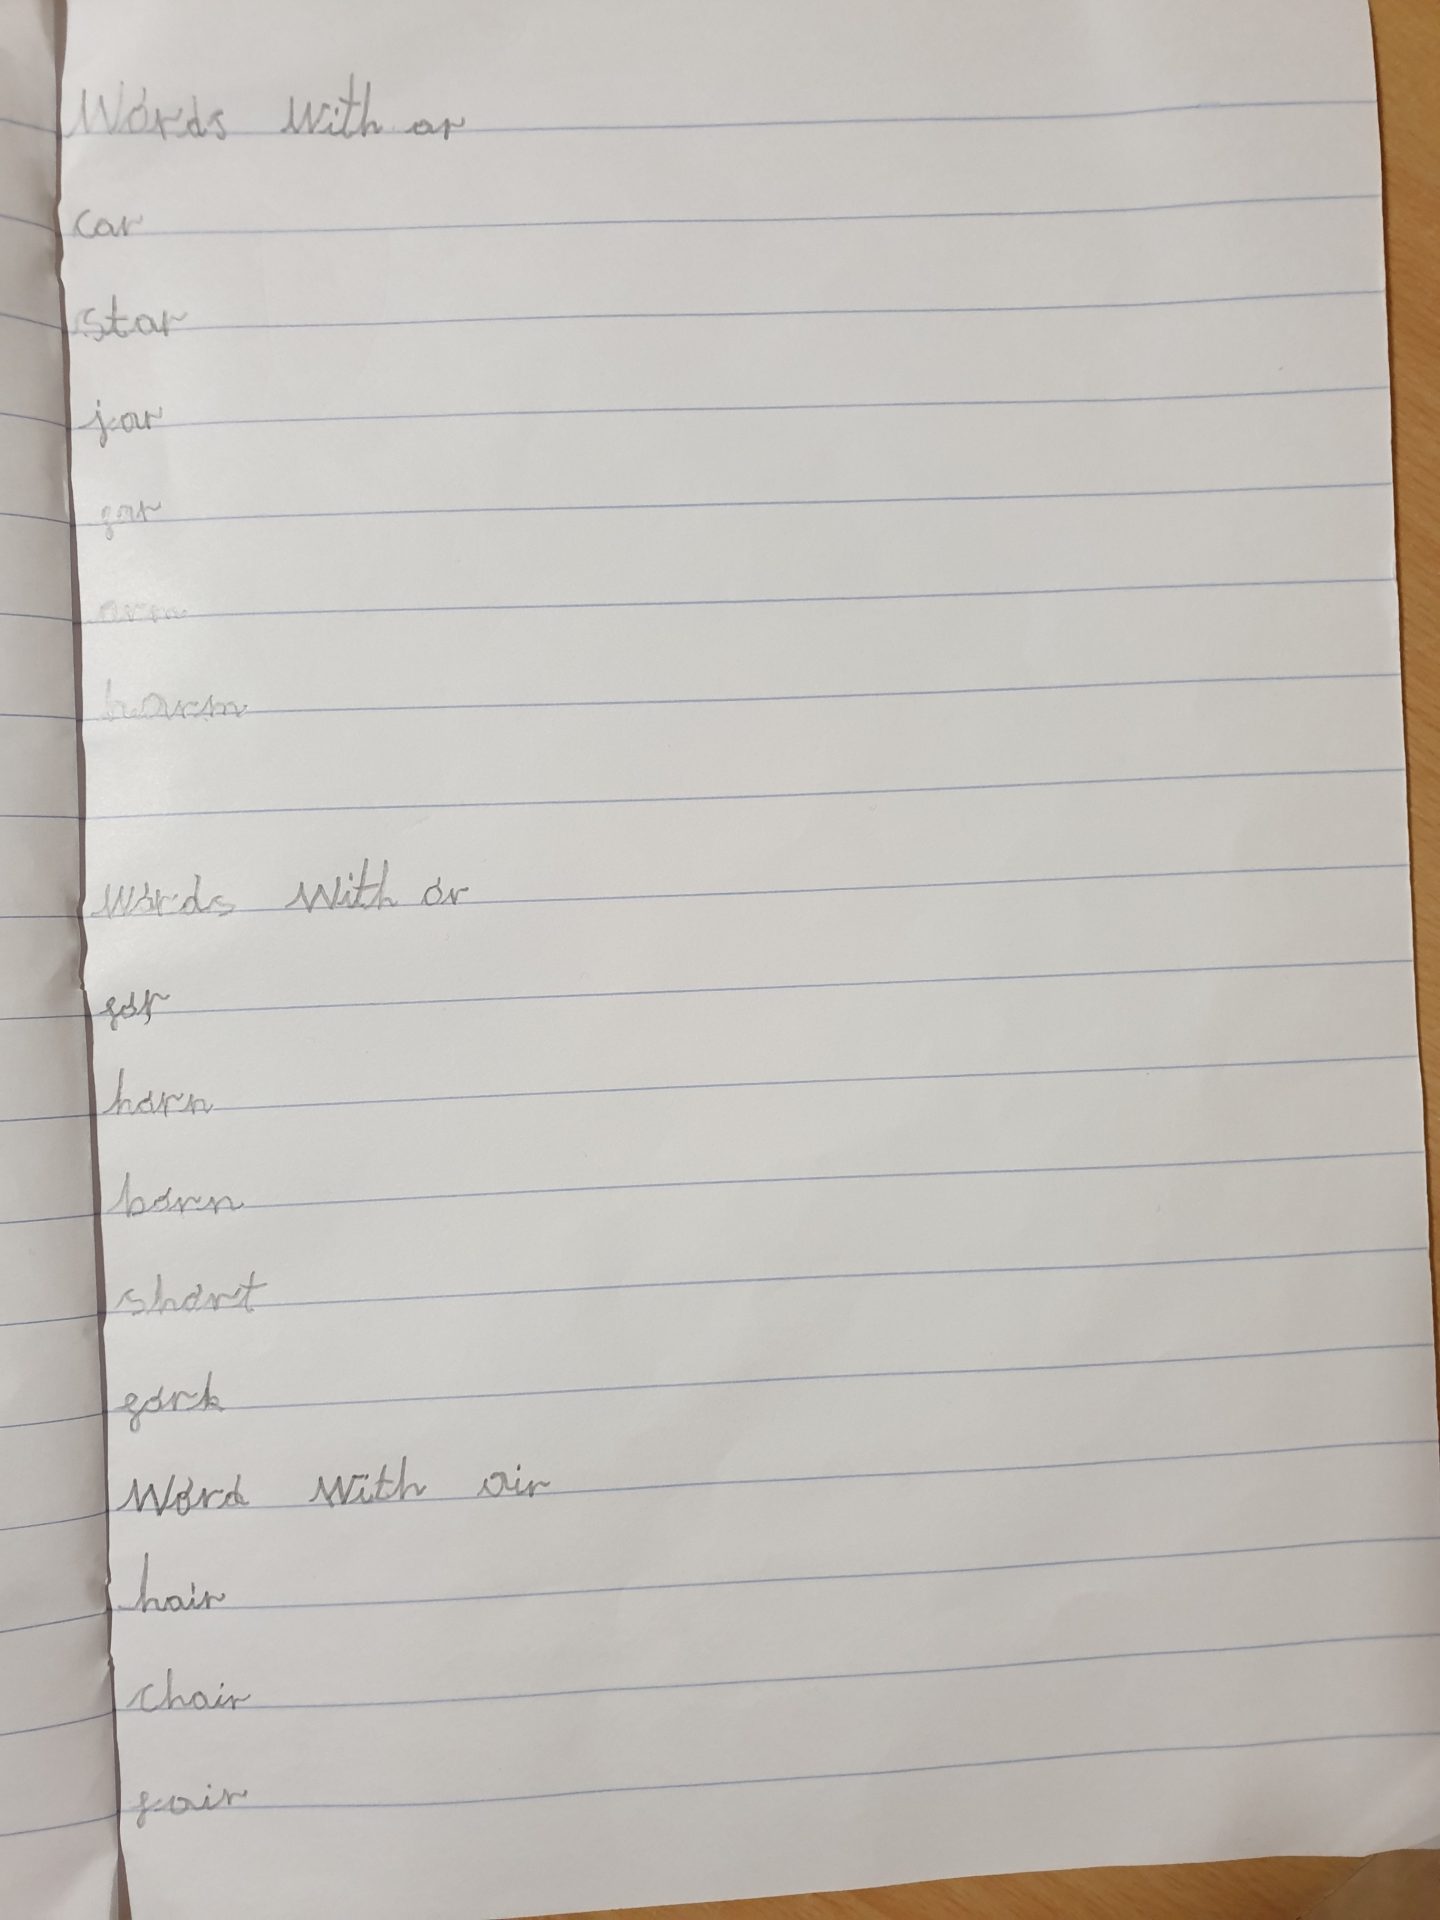 Words With ar
car
star
jar
far
arm
harm
Words With or
for
horn
born
short
fork
Word With air
hair
chair
fair